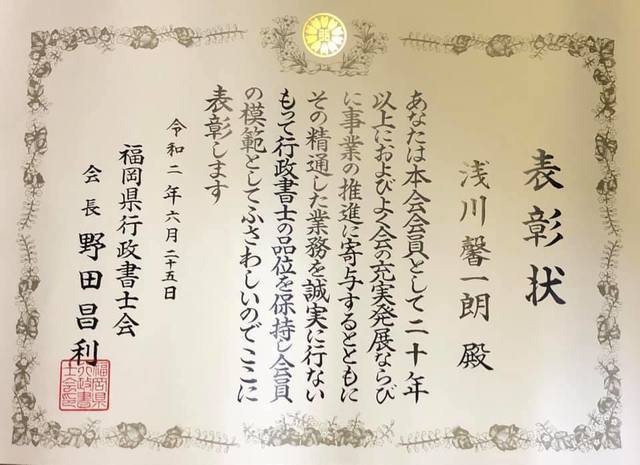 表彰状
浅川馨一朗 殿
あなたは本会会員として二十年
以上におよびよく会の充実発展ならび
に事業の推進に寄与するとともに
その精通した業務を誠実に行ない
もって行政書士の品位を保持し会員
の模範としてふさわしいのでここに
表彰します
令和二年六月二十五日
福岡県行政書士会
会長 野田昌利
福岡県
行政書
士会印